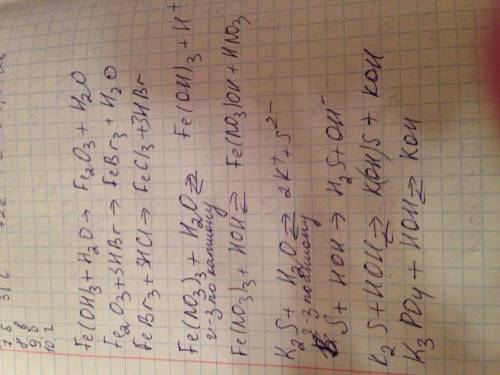 7. б
8. б
9. б
10. г
Fe(OH)3 + H2O → Fe2O3 + H2O
Fe2O3 + 3HBr → FeBr3 + H2O
FeBr3 + 3HCl → FeCl3 + 3HBr
Fe(NO3)3 + H2O ⇄ Fe(OH)3 + H+
г-з по катиону
Fe(NO3)3 + HOH ⇄ Fe(NO3)OH + HNO3
K2S + H2O ⇄ 2K+ + S2-
г-з по аниону
S + HOH → H2S + OH-
K2S + HOH ⇄ K(OH)S + KOH
K3PO4 + HOH ⇄ KOH